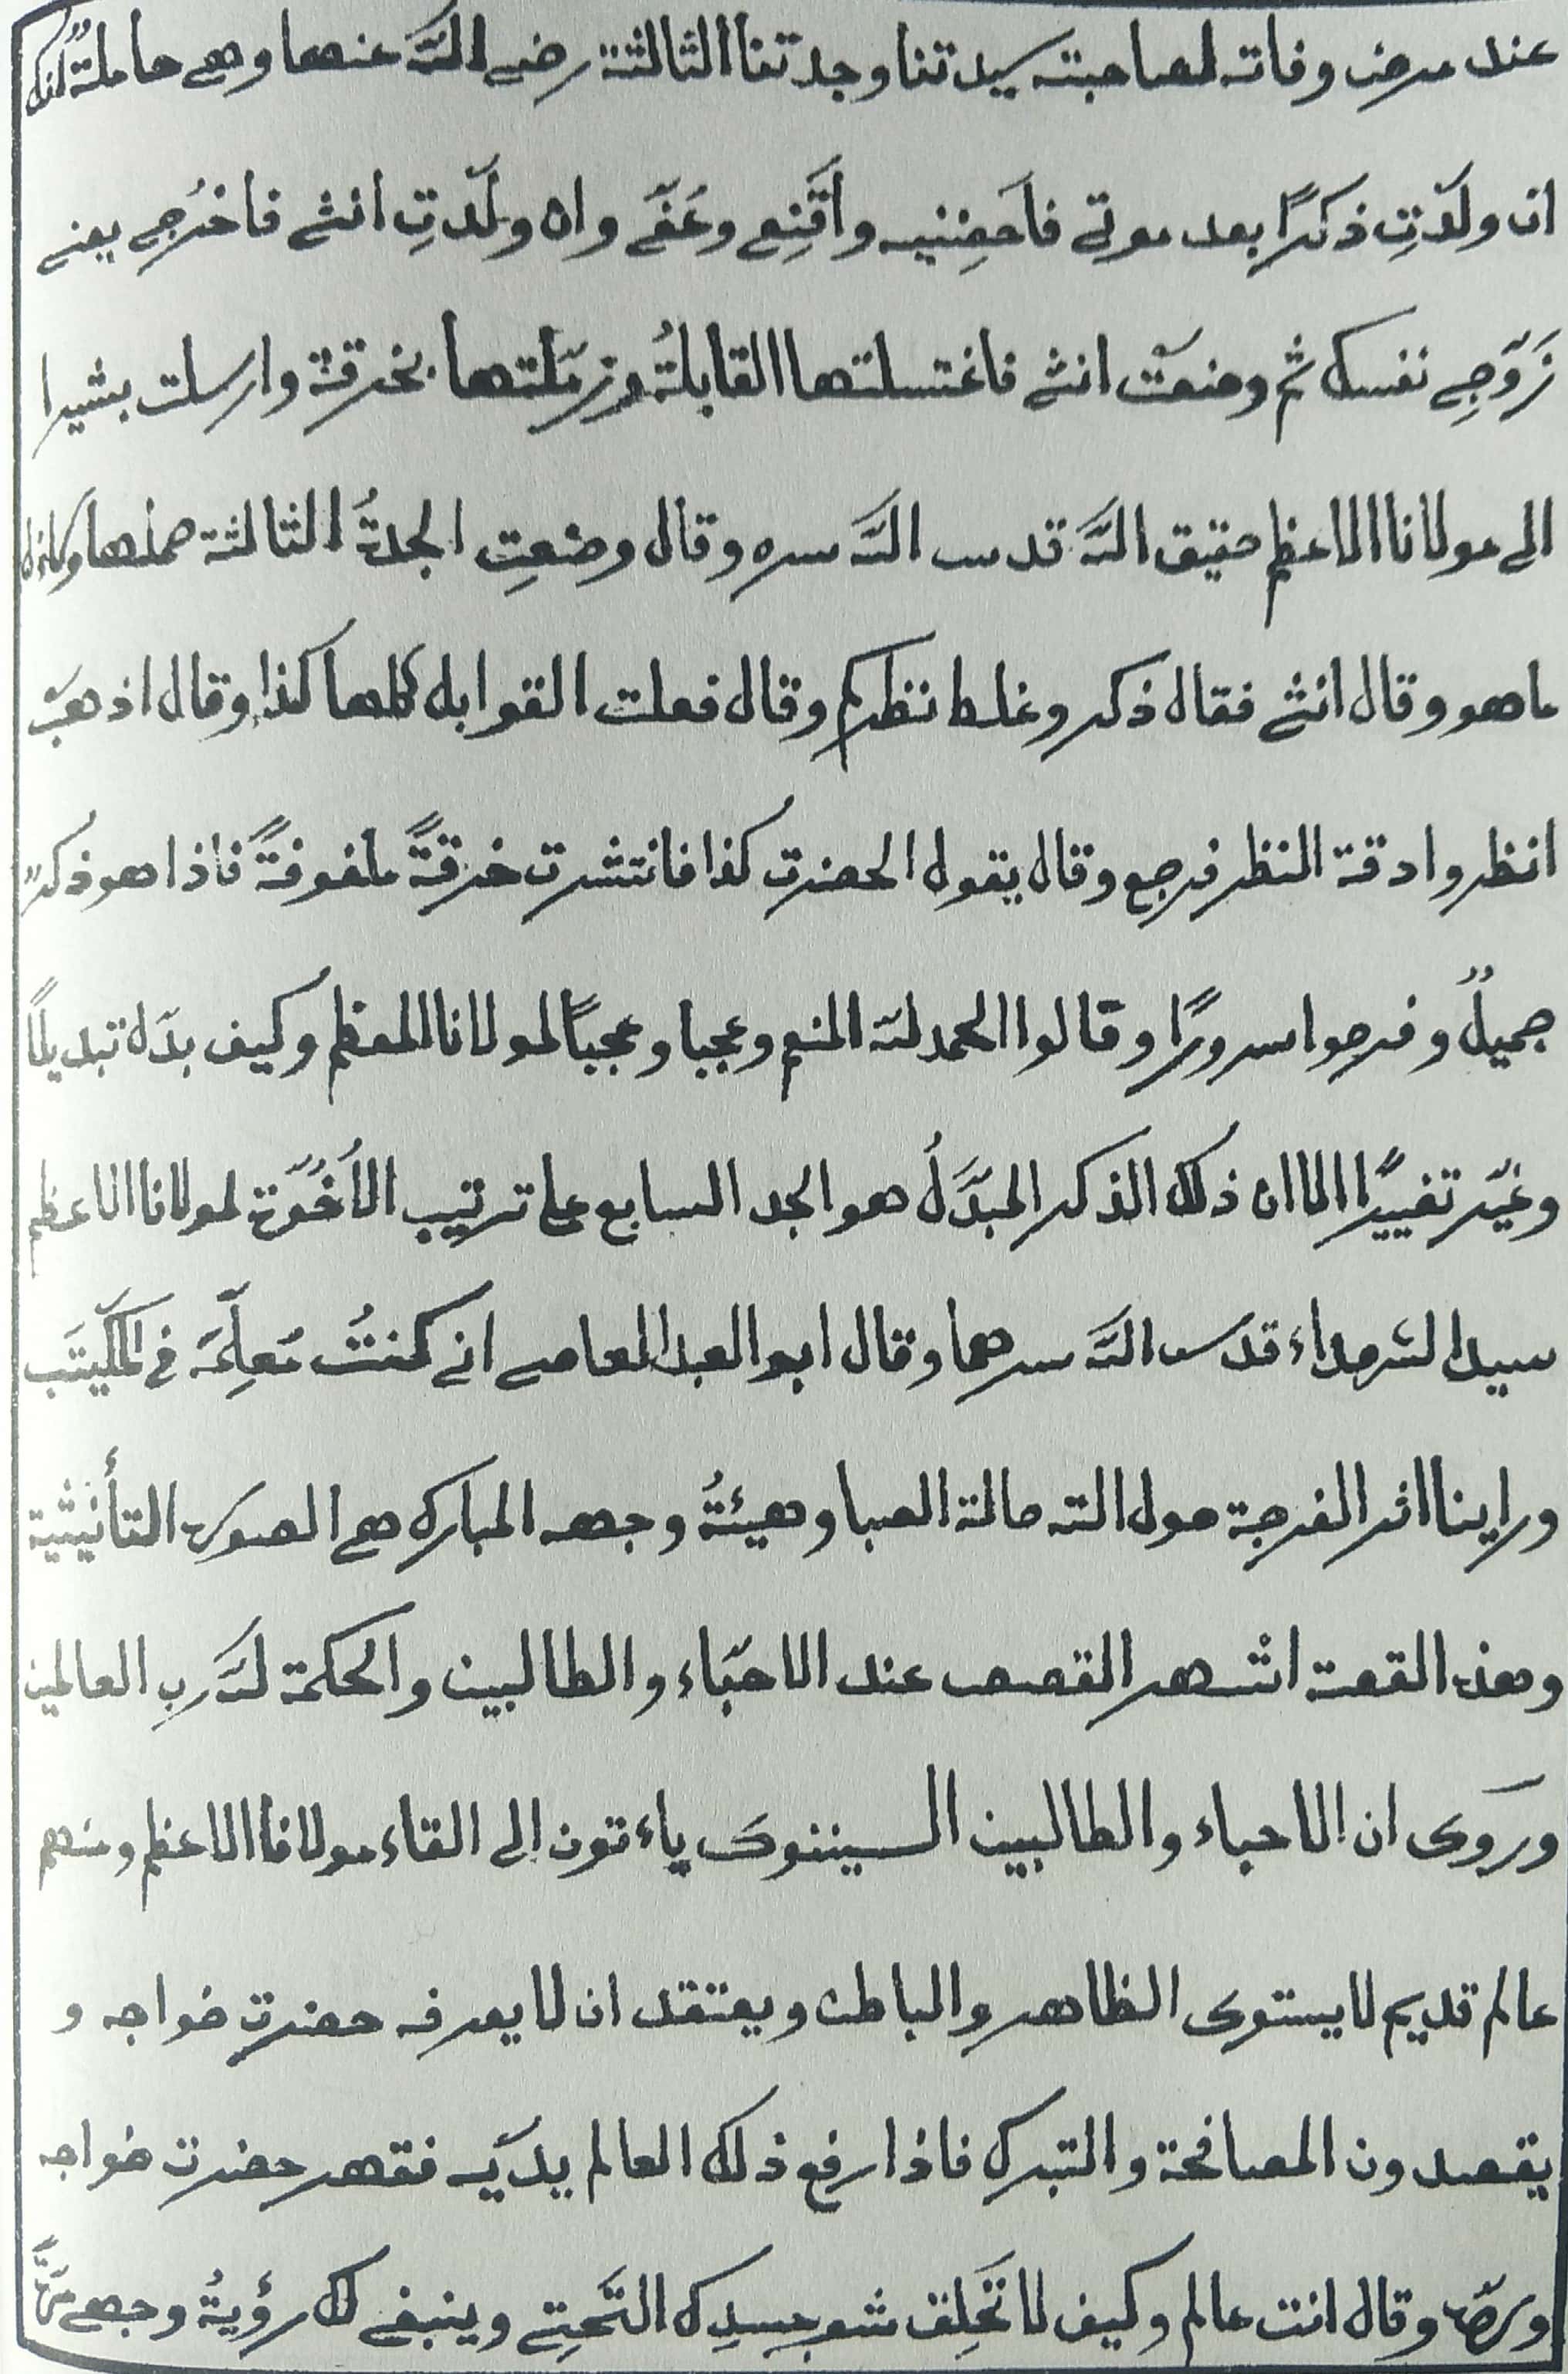 عند مرض وفاته لصاحبته سيدتنا وجدتنا الثالثة رضى الله عنها وهى حاملة لذلك
ان ولدتِ ذكرًا بعد موتى فاحضِنيه واقنِعى وعَفّى وان ولدتِ انثى فاخرُجى يعنى
زَوّجِى نفسك ثم وضعت انثى فاغتسلتها القابلةُ وزمّلتها بخرقة وارسلت بشيرا
الى مولانا الاعظم حقيق الله قدس الله سره وقال وضعتِ الجدةُ الثالثة حملها وكانه
ما هو وقال انثى فقال ذكر وغلط نظركم وقال فعلت القوابل كلها كذا وقال اذهب
انظروا دقة النظر فرجع وقال يقول الحضرت كذا فانتشرت خرقةً ملفوفةً فاذا هو ذكرٌ
جميلٌ وفرحوا سرورًا وقالوا الحمد لله المنعم وعجبا وعجبًا لمولانا المعظم وكيف بدّل تبديلًا
وغيّر تغييرًا الا ان ذلك الذكر المبدَّلُ هو الجد السابع على ترتيب الأخُوّة لمولانا الاعظم
سيد الشهداء قدس الله سرهما وقال ابو العبد العاصى انى كنتُ مَعلِّمَه فى المكيتَب
وراينا اثر الفرجة حول الته حالة الصبا وهيئةُ وجهه المبارك هى الصورة التأنيثية
وهذه القصة اشهر القصص عند الاحبّاء والطالبين والحكمة لله رب العالمين
ورَوى ان الاحباء والطالبين السيننوى ياءتون الى القاء مولانا الاعظم ومنهم
عالم قديم لا يستوى الظاهر والباطن ويعتقد ان لا يعرفه حضرت خواجه و
يقصدون المصافحة والتبرك فاذا رفع ذلك العالم يدَيه فقهر حضرت خواجه
وردّه وقال انت عالم وكيف لا تَحلِق شعر جسدِك التَحتِى وينبغى لك رؤيةُ وجهى